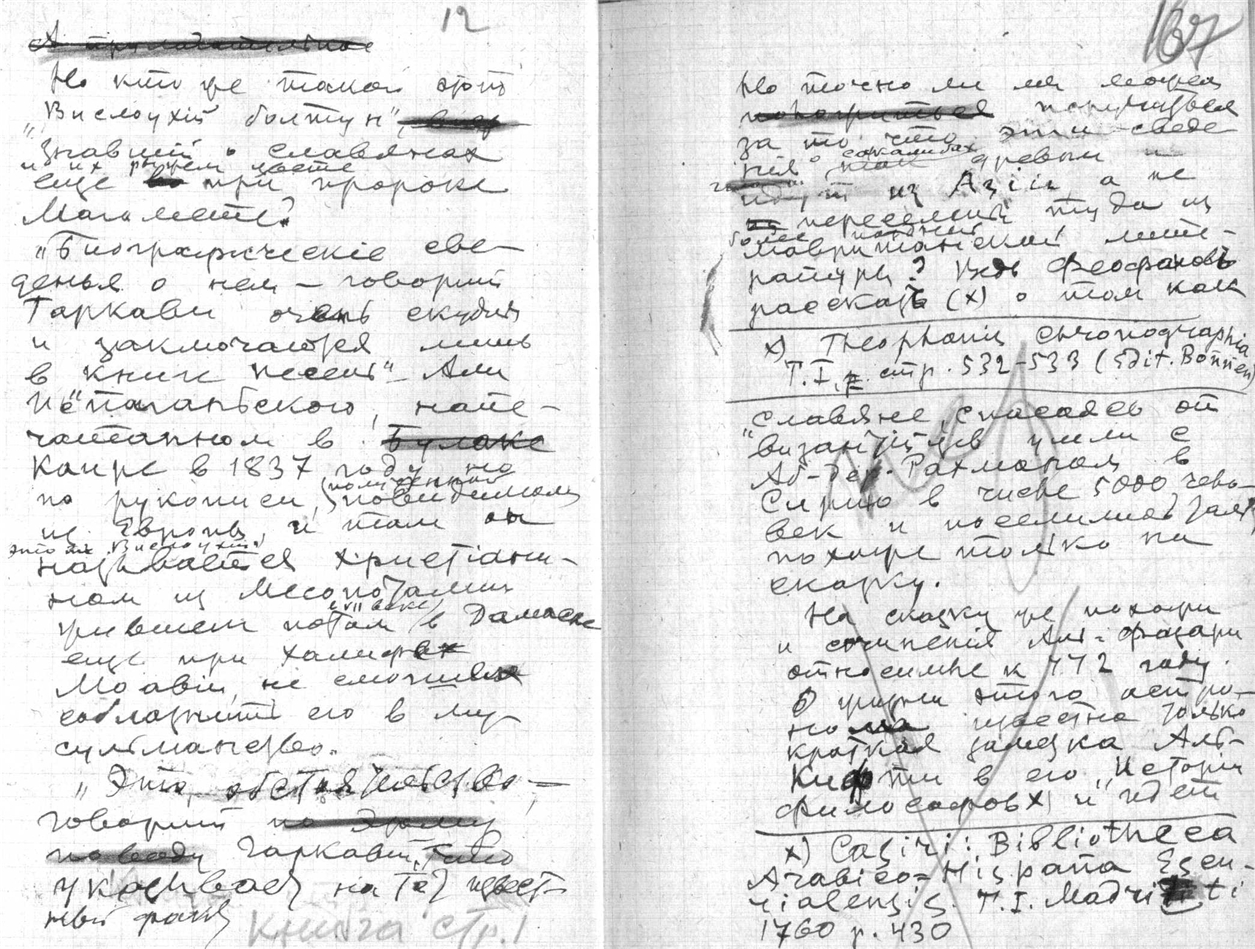 12
Но кто же такой этот
"Вислоухій болтун",
знавшій о славянах
и их рыжем цвете
еще при пророке
Магомете?
"Біографическіе све-
денья о нем – говорит
Гаркави очень скудны
и заключаются лишь
в книге песен" Али
Испаганьского, напе-
чатанном в Булаке
Каире в 1837 году но
по рукописи, полученной повидимому
из Европы, и там он
этот Вислоухій
называется христіани-
ном из Месопотаміи
жившем потом (в VII веке) в Дамаске
еще при халифах
Моавіи, не смогших
соблазнить его в му-
сульманство.
"Это обстоятельство, –
говорит
Гаркави,
указывает на тот извест-
ный факт
Книга стр. 1
167
Но точно ли мы можем
поручиться
за то что эти сведе
нія о сакалибах так древни и
идут из Азіи а не
переселились туда из
более поздней
мавританской лите-
ратуры? Ведь Феофановъ
рассказъ (x) о том как
x) Theophanis Chronographia
T. I, стр. 532–533 (Edit. Bonnen)
славяне, спасаясь от
византійцев ушли с
Аб-дер-Рахманом в
Сирию в числе 5000 чело-
век и поселились там,
похоже только на
сказку.
На сказку же похожи
и сочиненія Ал-Фазари
относимые к 772 году.
О жизни этого астро-
нома известна только
краткая заметка Аль-
Кифти в его "Исторіи
философов x) и" идет
x) Casiri: Bibliotheca
Arabico-Hispana Escu-
rialensis T. I. Madriti
1760 p. 430